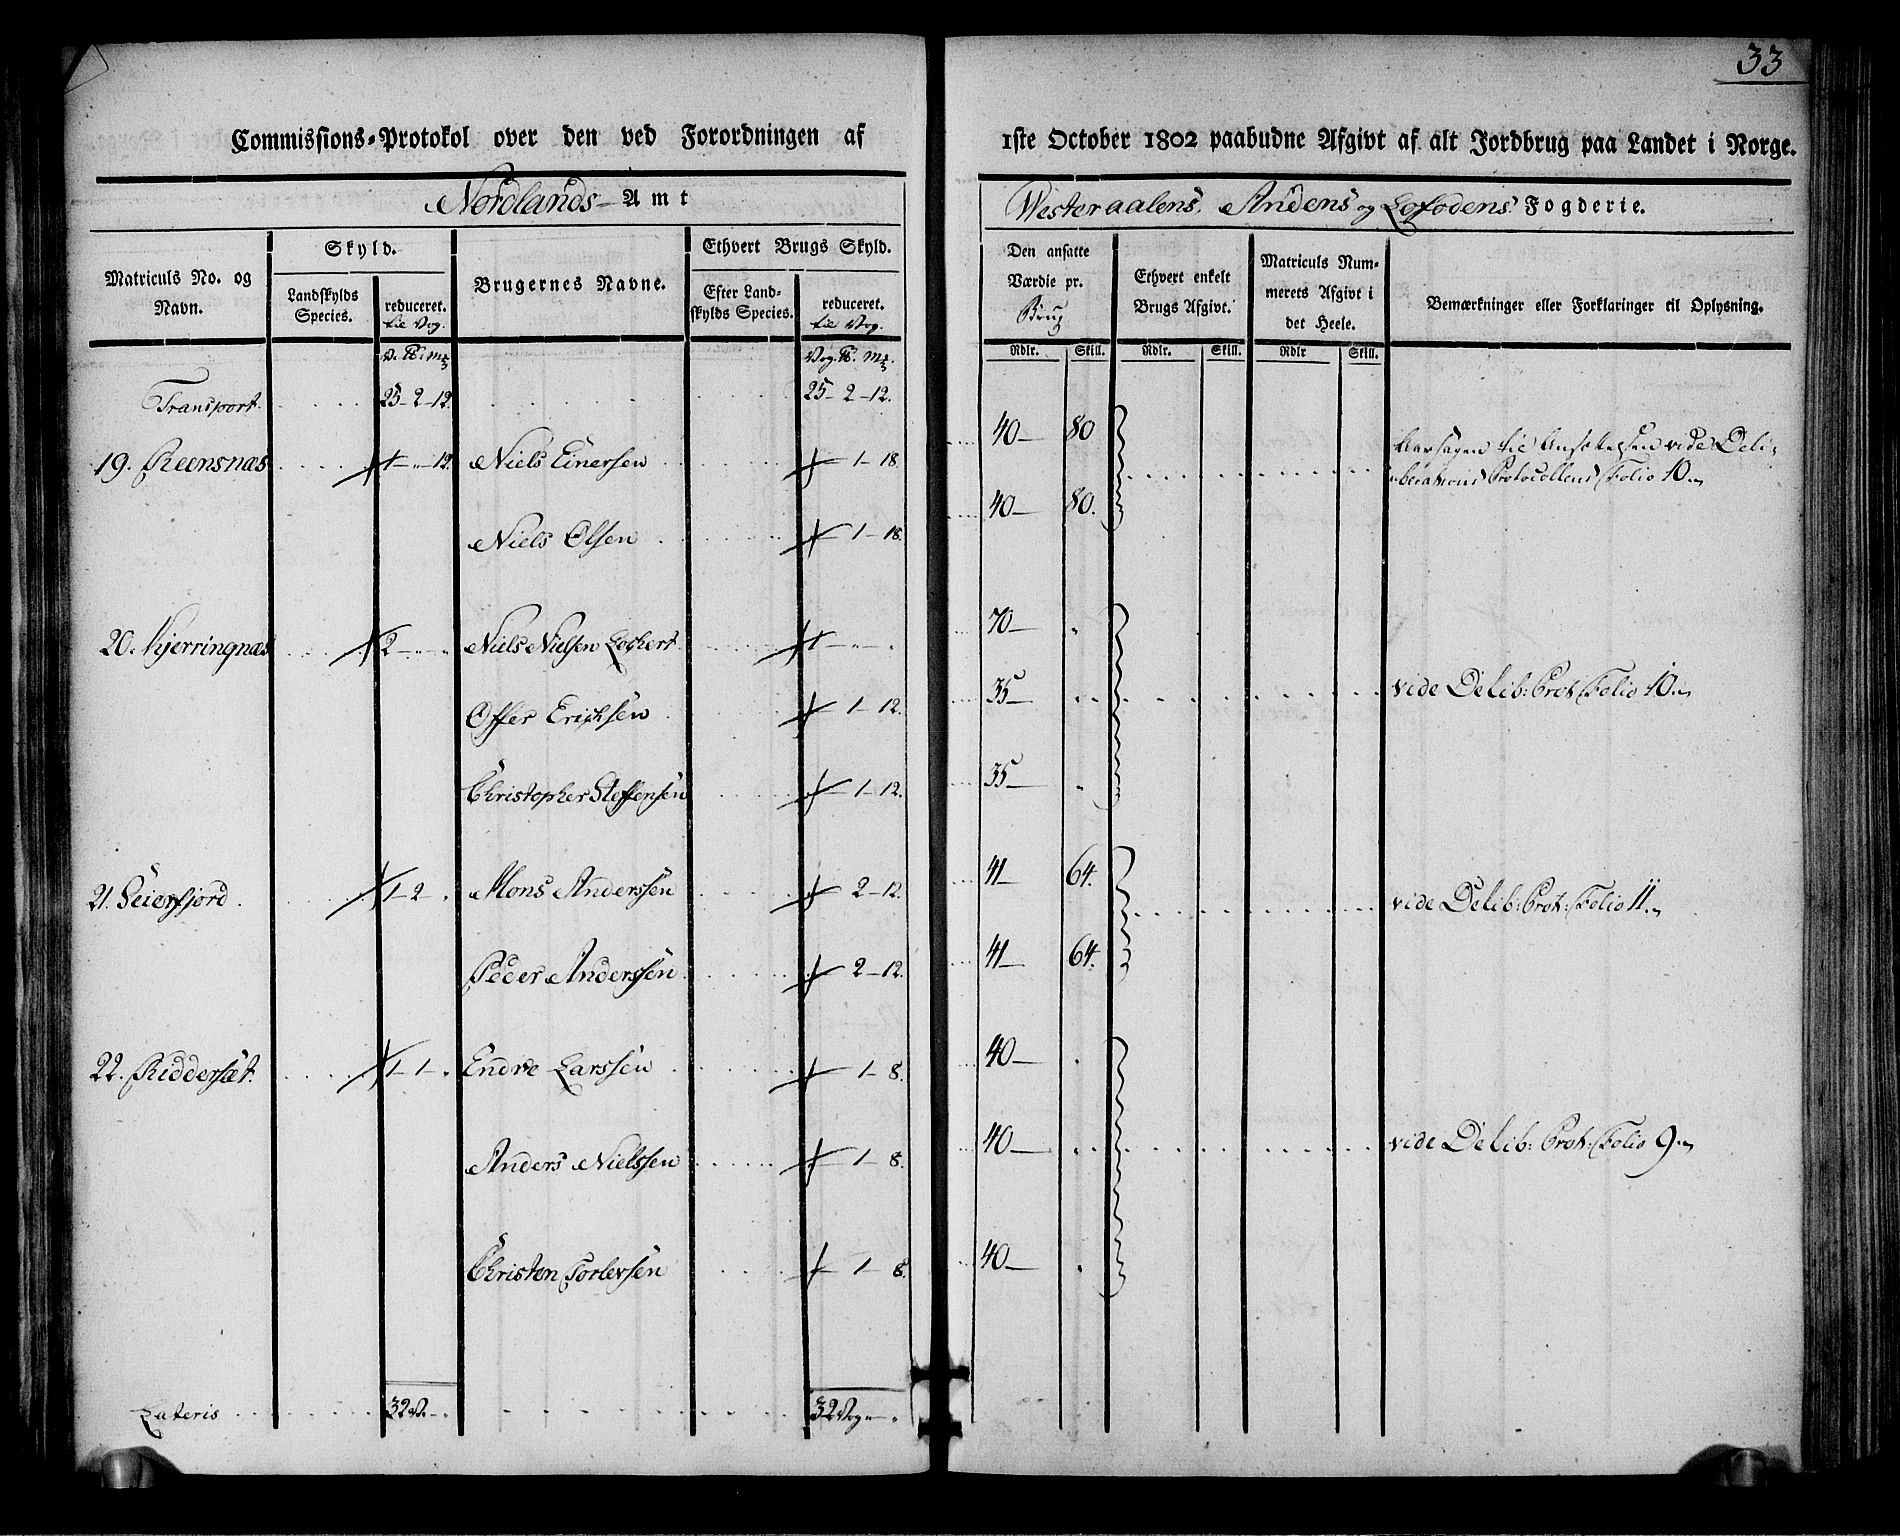 33
Commissions-Protokol over den ved Forordningen af 1ste October 1802 paabudne Afgivt af alt Jordbrug paa Landet i Norge.
Nordlands Amt
Westeraalens, Andens og Lofodens Fogderie.
Matriculs No. og Navn.
Skyld.
Landskylds Species.
reduceret. til Vog.
Brugernes Navne.
Ethvert Brugs Skyld.
Efter Landskylds Species.
reduceret. til Vog.
Den ansatte Værdie pr. Brug
Ethvert enkelt Brugs Afgivt.
Matriculs Nummerets Afgivt i det Heele.
Bemærkninger eller Forklaringer til Oplysning.
Rdlr. Skill. Rdlr. Skill. Rdlr Skill.
Transport. 25-2-12. 25-2-12.
19. Reensnæs 1-„-12. Niels Einersen 1-18. 40- 80
Aarsagen til Ansættelsen vide Deli-
berations Protocollens Folio 10.
Niels Olsen 1-18. 40- 80.
20. Kjerringnæs 2-„-„ Niels Nielsen Lockert 1-„-„ 70- „
Offer Erichsen 1-12. 35- vide Delib: Prot: Folio 10.
Christopher Steffensen 1-12. 35- „
21. Seierfjord. 1-2-„ Mons Anderssen 2-12. 41- 64. vide Delib: Prot: Folio 11.
Peder Anderssen 2-12. 41- 64.
22. Riddersæt. 1-1-„ Endre Larssen 1-8. 40- „
Anders Nielssen 1-8. 40- „ vide Delib: Prot: Folio 9.
Christen Torlevsen 1-8. 40- „
Lateris 32 V. „ 32 Vog „